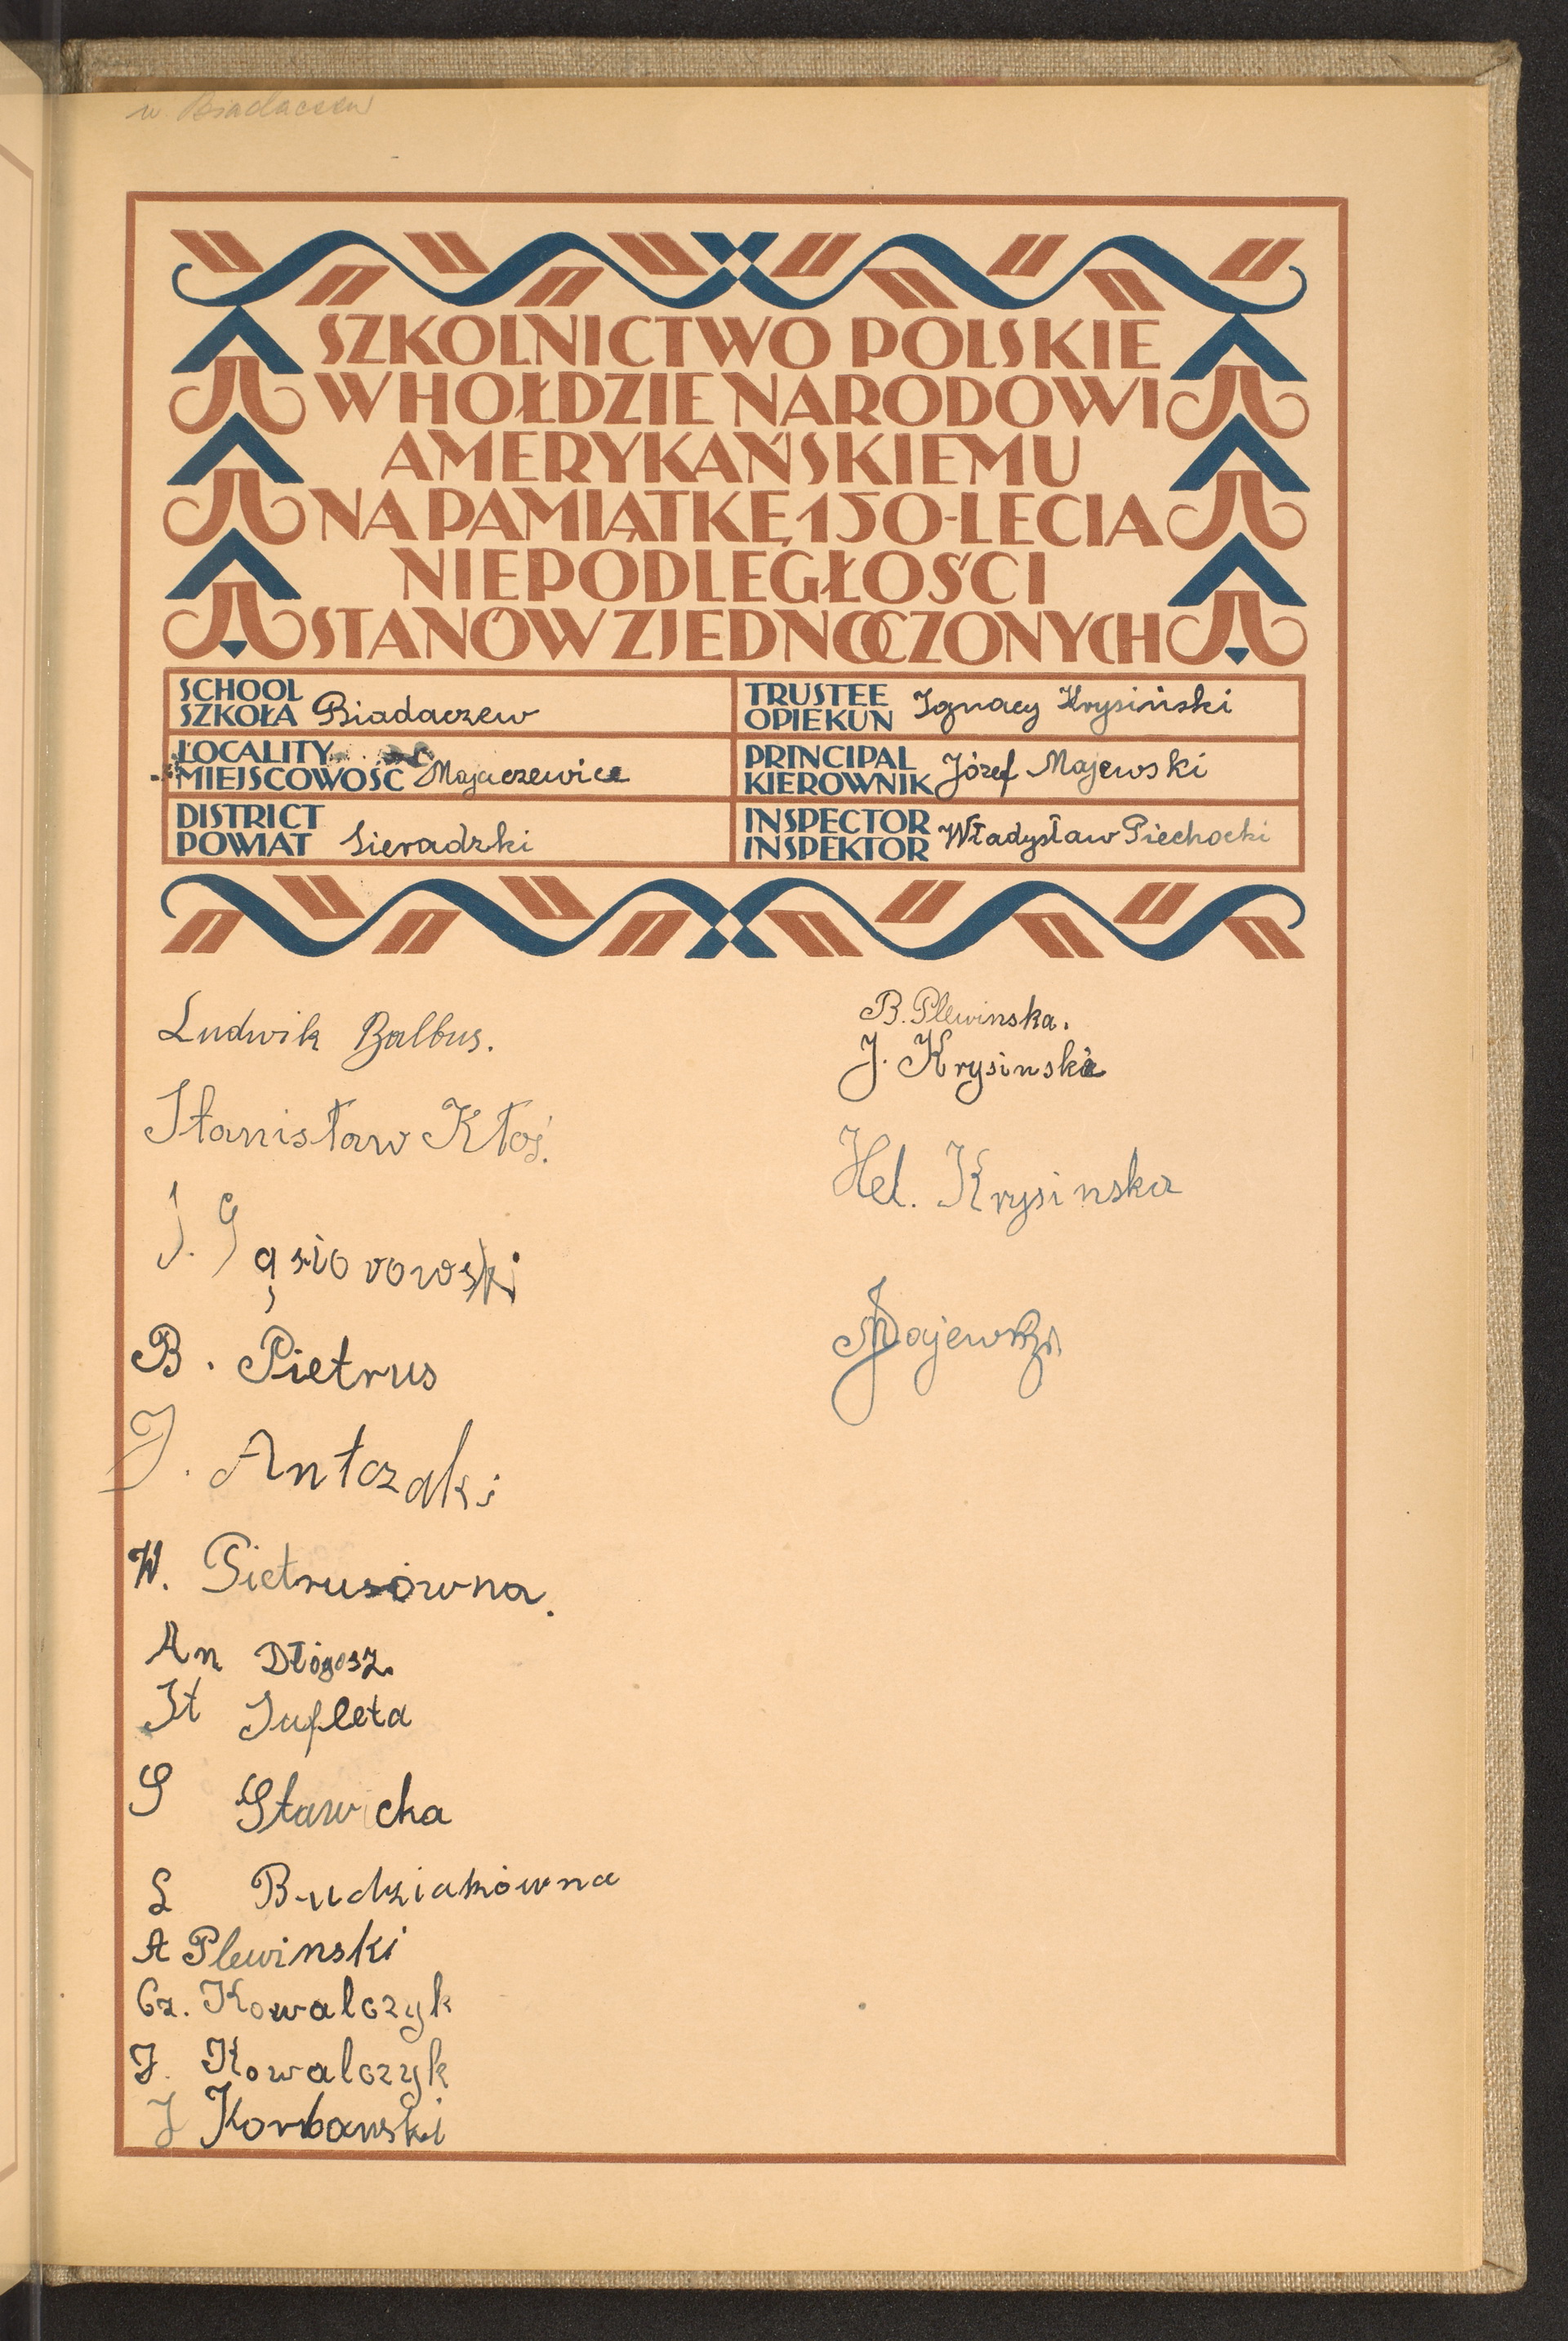 w Biadaczew
SZKOLNICTWO POLSKIE
W HOŁDZIE NARODOWI
AMERYKAŃSKIEMU
NA PAMIĄTKĘ 150-LECIA
NIEPODLEGŁOŚCI
STANÓW ZJEDNOCZONYCH
SCHOOL
SZKOŁA Biadaczew
TRUSTEE
OPIEKUN Ignacy Krysiński
LOCALITY
MIEJSCOWOŚĆ Majaczewice
PRINCIPAL
KIEROWNIK Józef Majewski
DISTRICT
POWIAT Sieradzki
INSPECTOR
INSPEKTOR Władysław Piechocki
Ludwik Balbus.
Stanisław Kłoś.
J. Gąsiorowski
B. Pietrus
J. Antczaki
W. Pietrusówna.
An Dłógosz.
St Sufleta
S Sławicka
L Budziakówna
A Plewinski
Cz. Kowalczyk
J. Kowalczyk
J Korbanski
B. Plewinska.
J. Krysinska
Hel. Krysinska
JMajewski